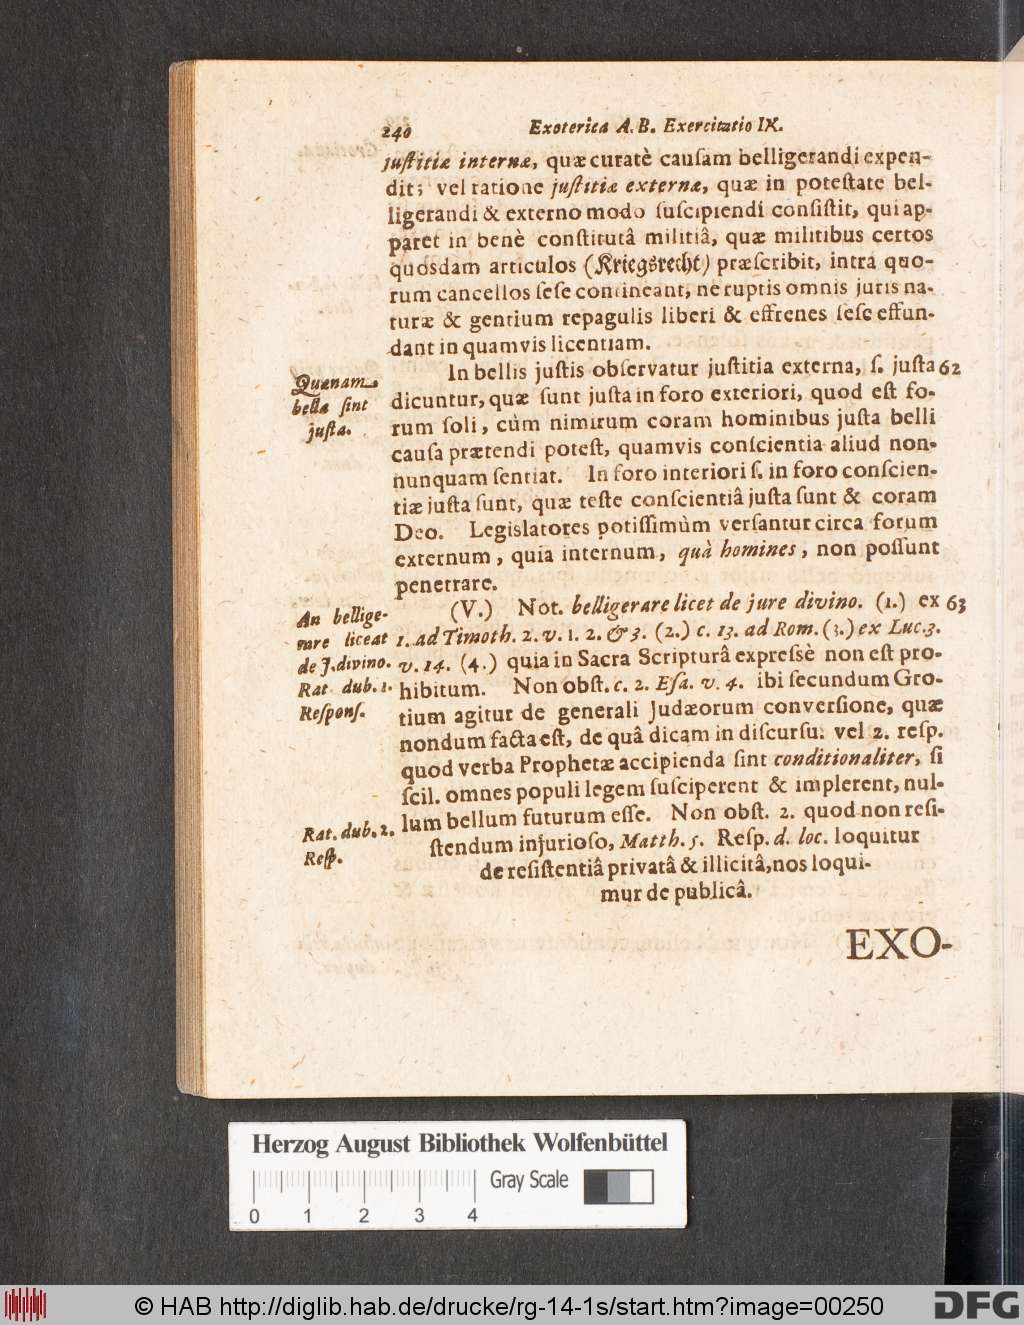 240 Exoterica A. B. Exercitatio IX.
justitiæ internæ, quæ curatè causam belligerandi expen-
dit; vel ratione justitiæ externæ, quæ in potestate bel-
ligerandi & externo modo suscipiendi consistit, qui ap-
paret in benè constitutâ militiâ, quæ militibus certos
quosdam articulos (Kriegsrecht) præscribit, intra quo-
rum cancellos sese contineant, ne ruptis omnis juris na-
turæ & gentium repagulis liberi & effrenes sese effun-
dant in quamvis licentiam.
Quænam
bella sint
justa.
In bellis justis observatur justitia externa, s. justa 62
dicuntur, quæ sunt justa in foro exteriori, quod est fo-
rum soli, cùm nimirum coram hominibus justa belli
causa prætendi potest, quamvis conscientia aliud non-
nunquam sentiat. In foro interiori s. in foro conscien-
tiæ justa sunt, quæ teste conscientiâ justa sunt & coram
Deo. Legislatores potissimùm versantur circa forum
externum, quia internum, quà homines, non possunt
penetrare.
An bellige-
rare liceat
de J. divino.
Rat dub. 1.
Respons.
(V.) Not. belligerare licet de jure divino. (1.) ex 63
1. ad Timoth. 2. v. 1. 2. & 3. (2.) c. 13. ad Rom. (3.) ex Luc. 3.
v. 14. (4.) quia in Sacra Scripturâ expressè non est pro-
hibitum. Non obst. c. 2. Esa. v. 4. ibi secundum Gro-
tium agitur de generali Judæorum conversione, quæ
nondum facta est, de quâ dicam in discursu. vel 2. resp.
quod verba Prophetæ accipienda sint conditionaliter, si
scil. omnes populi legem susciperent & implerent, nul-
lum bellum futurum esse. Non obst. 2. quod non resi-
Rat. dub. 2.
Resp.
stendum injurioso, Matth. 5. Resp. d. loc. loquitur
de resistentiâ privatâ & illicitâ, nos loqui-
mur de publicâ.
EXO-
Herzog August Bibliothek Wolfenbüttel
Gray Scale
0 1 2 3 4
© HAB http://diglib.hab.de/drucke/rg-14-1s/start.htm?image=00250
DFG